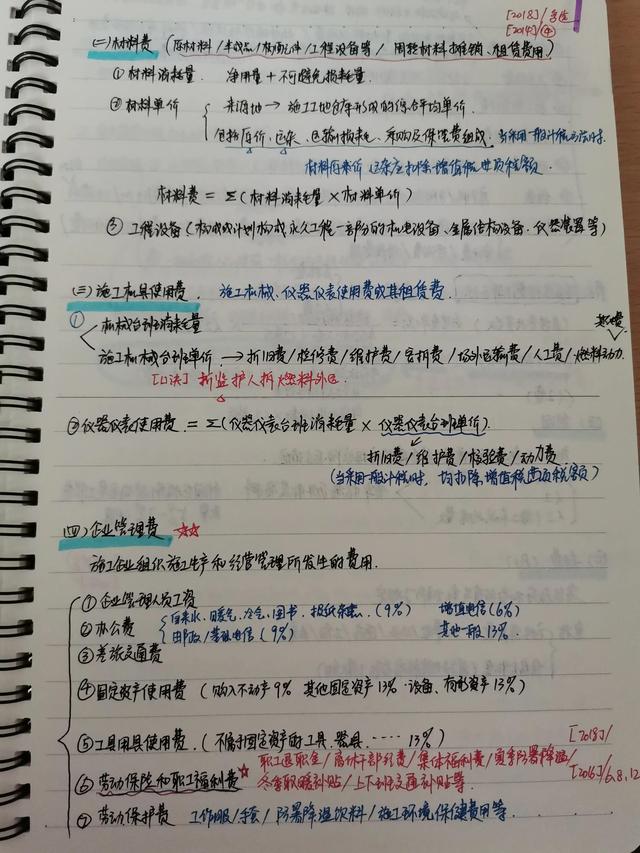 [2018]/多选
[2014]④
(二)材料费 (原材料/半成品/构配件/工程设备等/周转材料摊销、租赁费用)
① 材料消耗量. 净用量+不可避免损耗量.
② 材料单价
来源地→施工地仓库形成的综合平均单价.
包括原价、运杂、运输损耗、采购及保管费组成. 当采用一般计税方法时.
材料原来价 运杂应扣除增值税进项税额.
材料费 = Σ(材料消耗量×材料单价)
③ 工程设备(构成或计划构成永久工程一部分的机电设备、金属结构设备、仪器装置等)
(三)施工机具使用费. 施工机械、仪器仪表使用费或其租赁费.
① 机械台班消耗量
其他费
施工机械台班单价→折旧费/检修费/维护费/安拆费/场外运输费/人工费/燃料动力.
[口诀] 折监护人拆燃料外运.
②仪器仪表使用费 = Σ(仪器仪表台班消耗量×仪器仪表台班单价)
折旧费/维护费/校验费/动力费
(当采用一般计税时. 均扣除增值税进项税额)
(四)企业管理费 ☆☆
施工企业组织施工生产和经营管理所发生的费用.
① 企业管理人员工资
② 办公费
自来水、暖气、冷气、图书、报纸杂志. (9%) 增值电信(6%)
由邮政/基础电信(9%) 其他一般13%.
③ 差旅交通费
④ 固定资产使用费 (购入不动产9% 其他固定资产13%·设备、有形资产13%)
⑤ 工具用具使用费. (不属于固定资产的工具、器具.····· 13%)
[2018]/
职工退职金/离休干部列费/集体福利费/夏季防暑降温/
[2016]/6.8.12
⑥ 劳动保险和职工福利费☆ 冬季取暖补贴/上下班交通补贴等.
⑦ 劳动保护费 工作服/手套/防暑降温饮料/施工环境保健费用等.